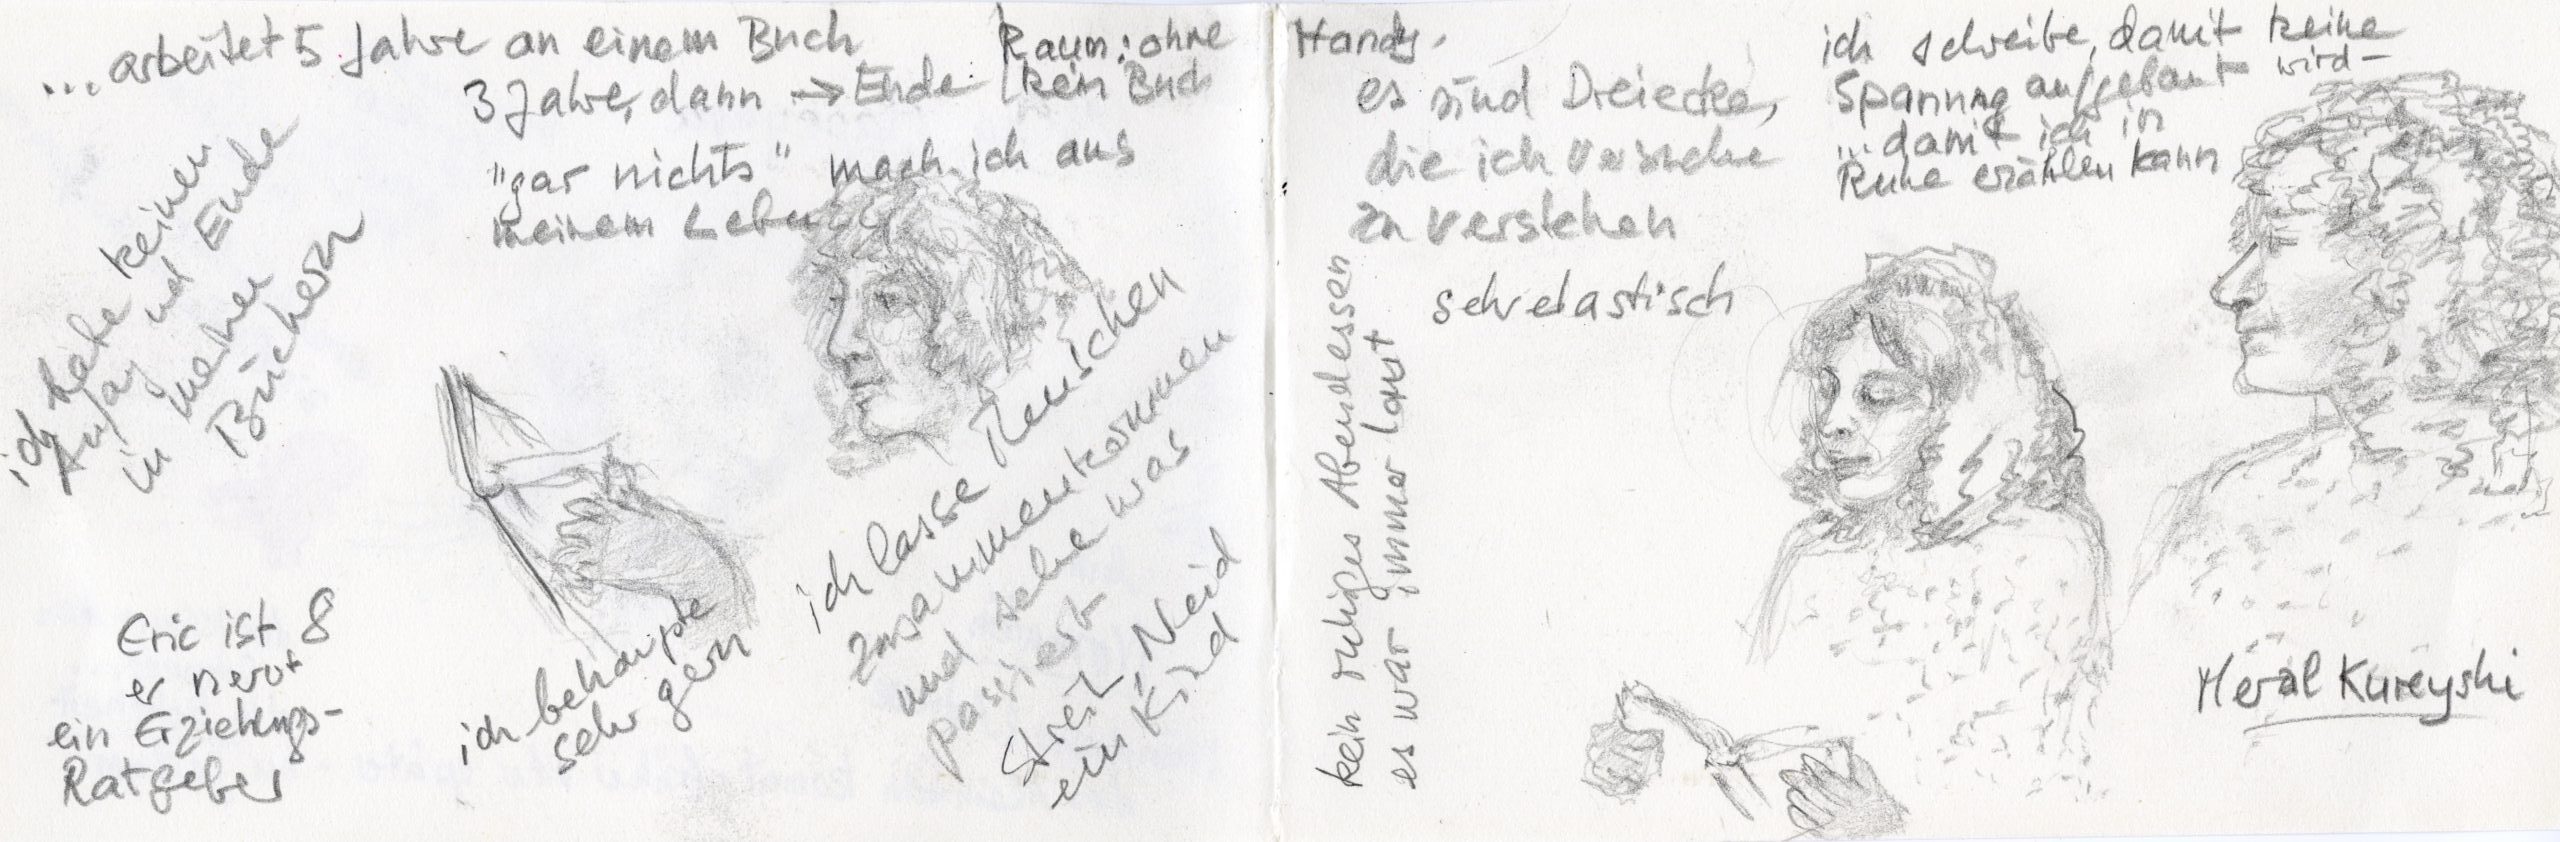 ...arbeitet 5 Jahre an einem Buch
3 Jahre, dann → Ende
"gar nichts" mach ich aus
meinem Leben
Raum: ohne Handy.
kein Buch
ich habe keinen
Anfang und Ende
in meinen
Büchern
Eric ist 8
er nervt
ein Erziehungs-
Ratgeber
ich behaupte
sehr gern
ich lasse Menschen
zusammenkommen
und sehe was
passiert
Streit, Neid
ein Kind
es sind Dreiecke,
die ich versuche
zu verstehen
sehr elastisch
kein ruhiges Abendessen
es war immer laut
ich schreibe, damit keine
Spannung aufgebaut wird-
...damit ich in
Ruhe erzählen kann
Meral Kureyshi